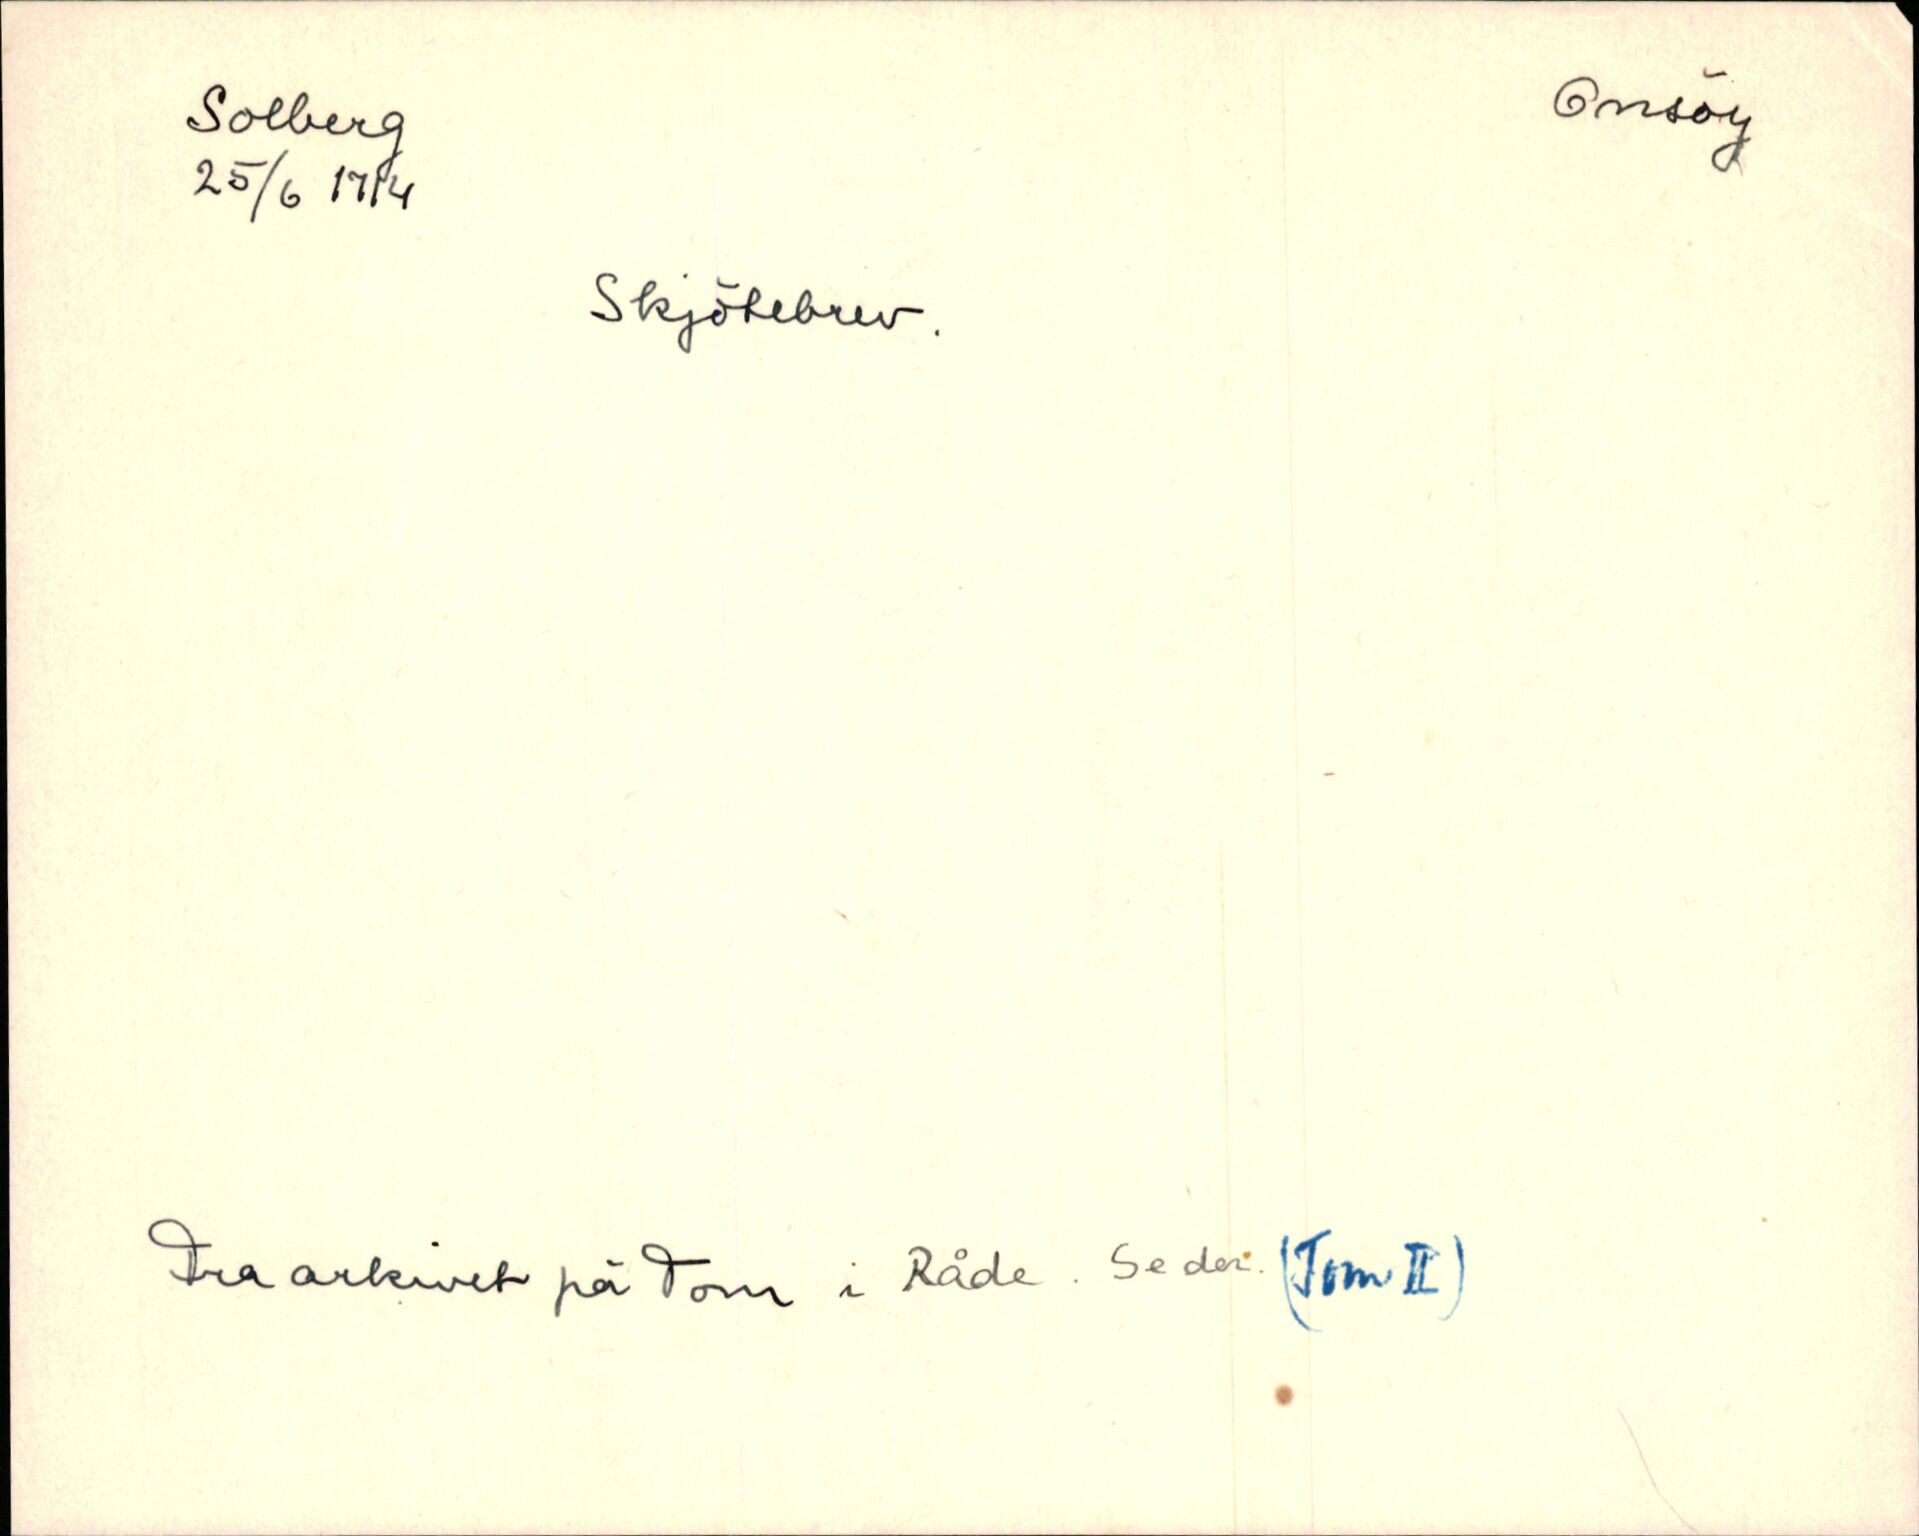 Solberg
Onsöy
25/6 1714
Skjötebrev.
Fra arkivet på Tom i Råde. Se der. (Tom II)